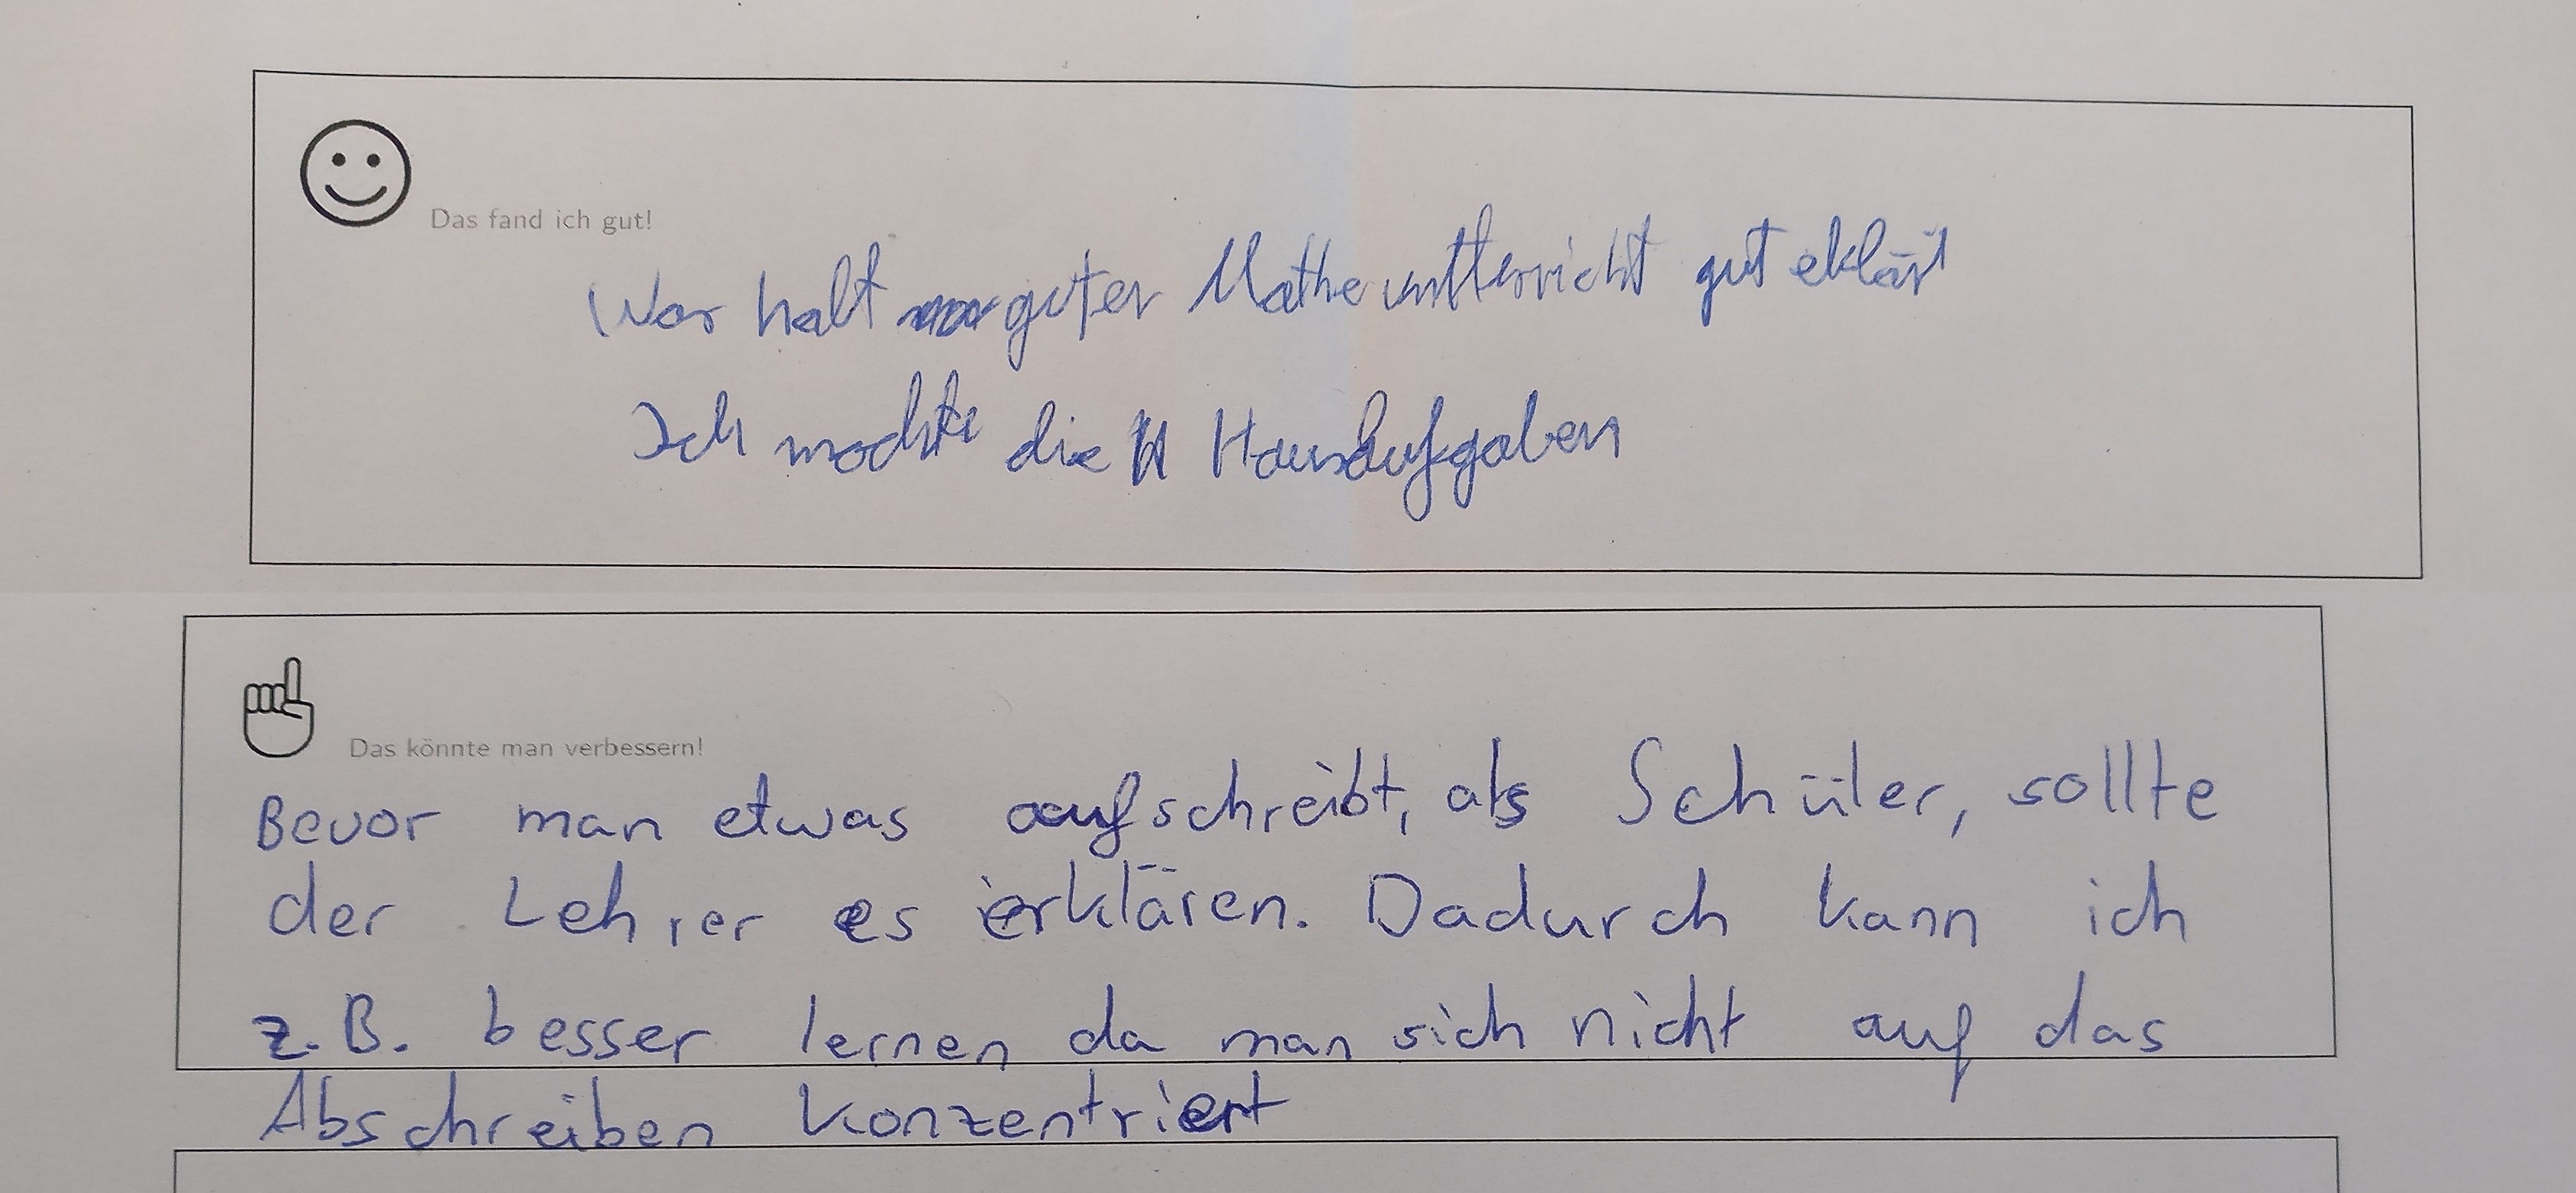 Das fand ich gut!
War halt guter Matheuntterricht gut eklärt
Ich mochte die Hausaufgaben
Das könnte man verbessern!
Bevor man etwas aufschreibt, als Schüler, sollte
der Lehrer es erklären. Dadurch kann ich
z.B. besser lernen da man sich nicht auf das
Abschreiben konzentriert